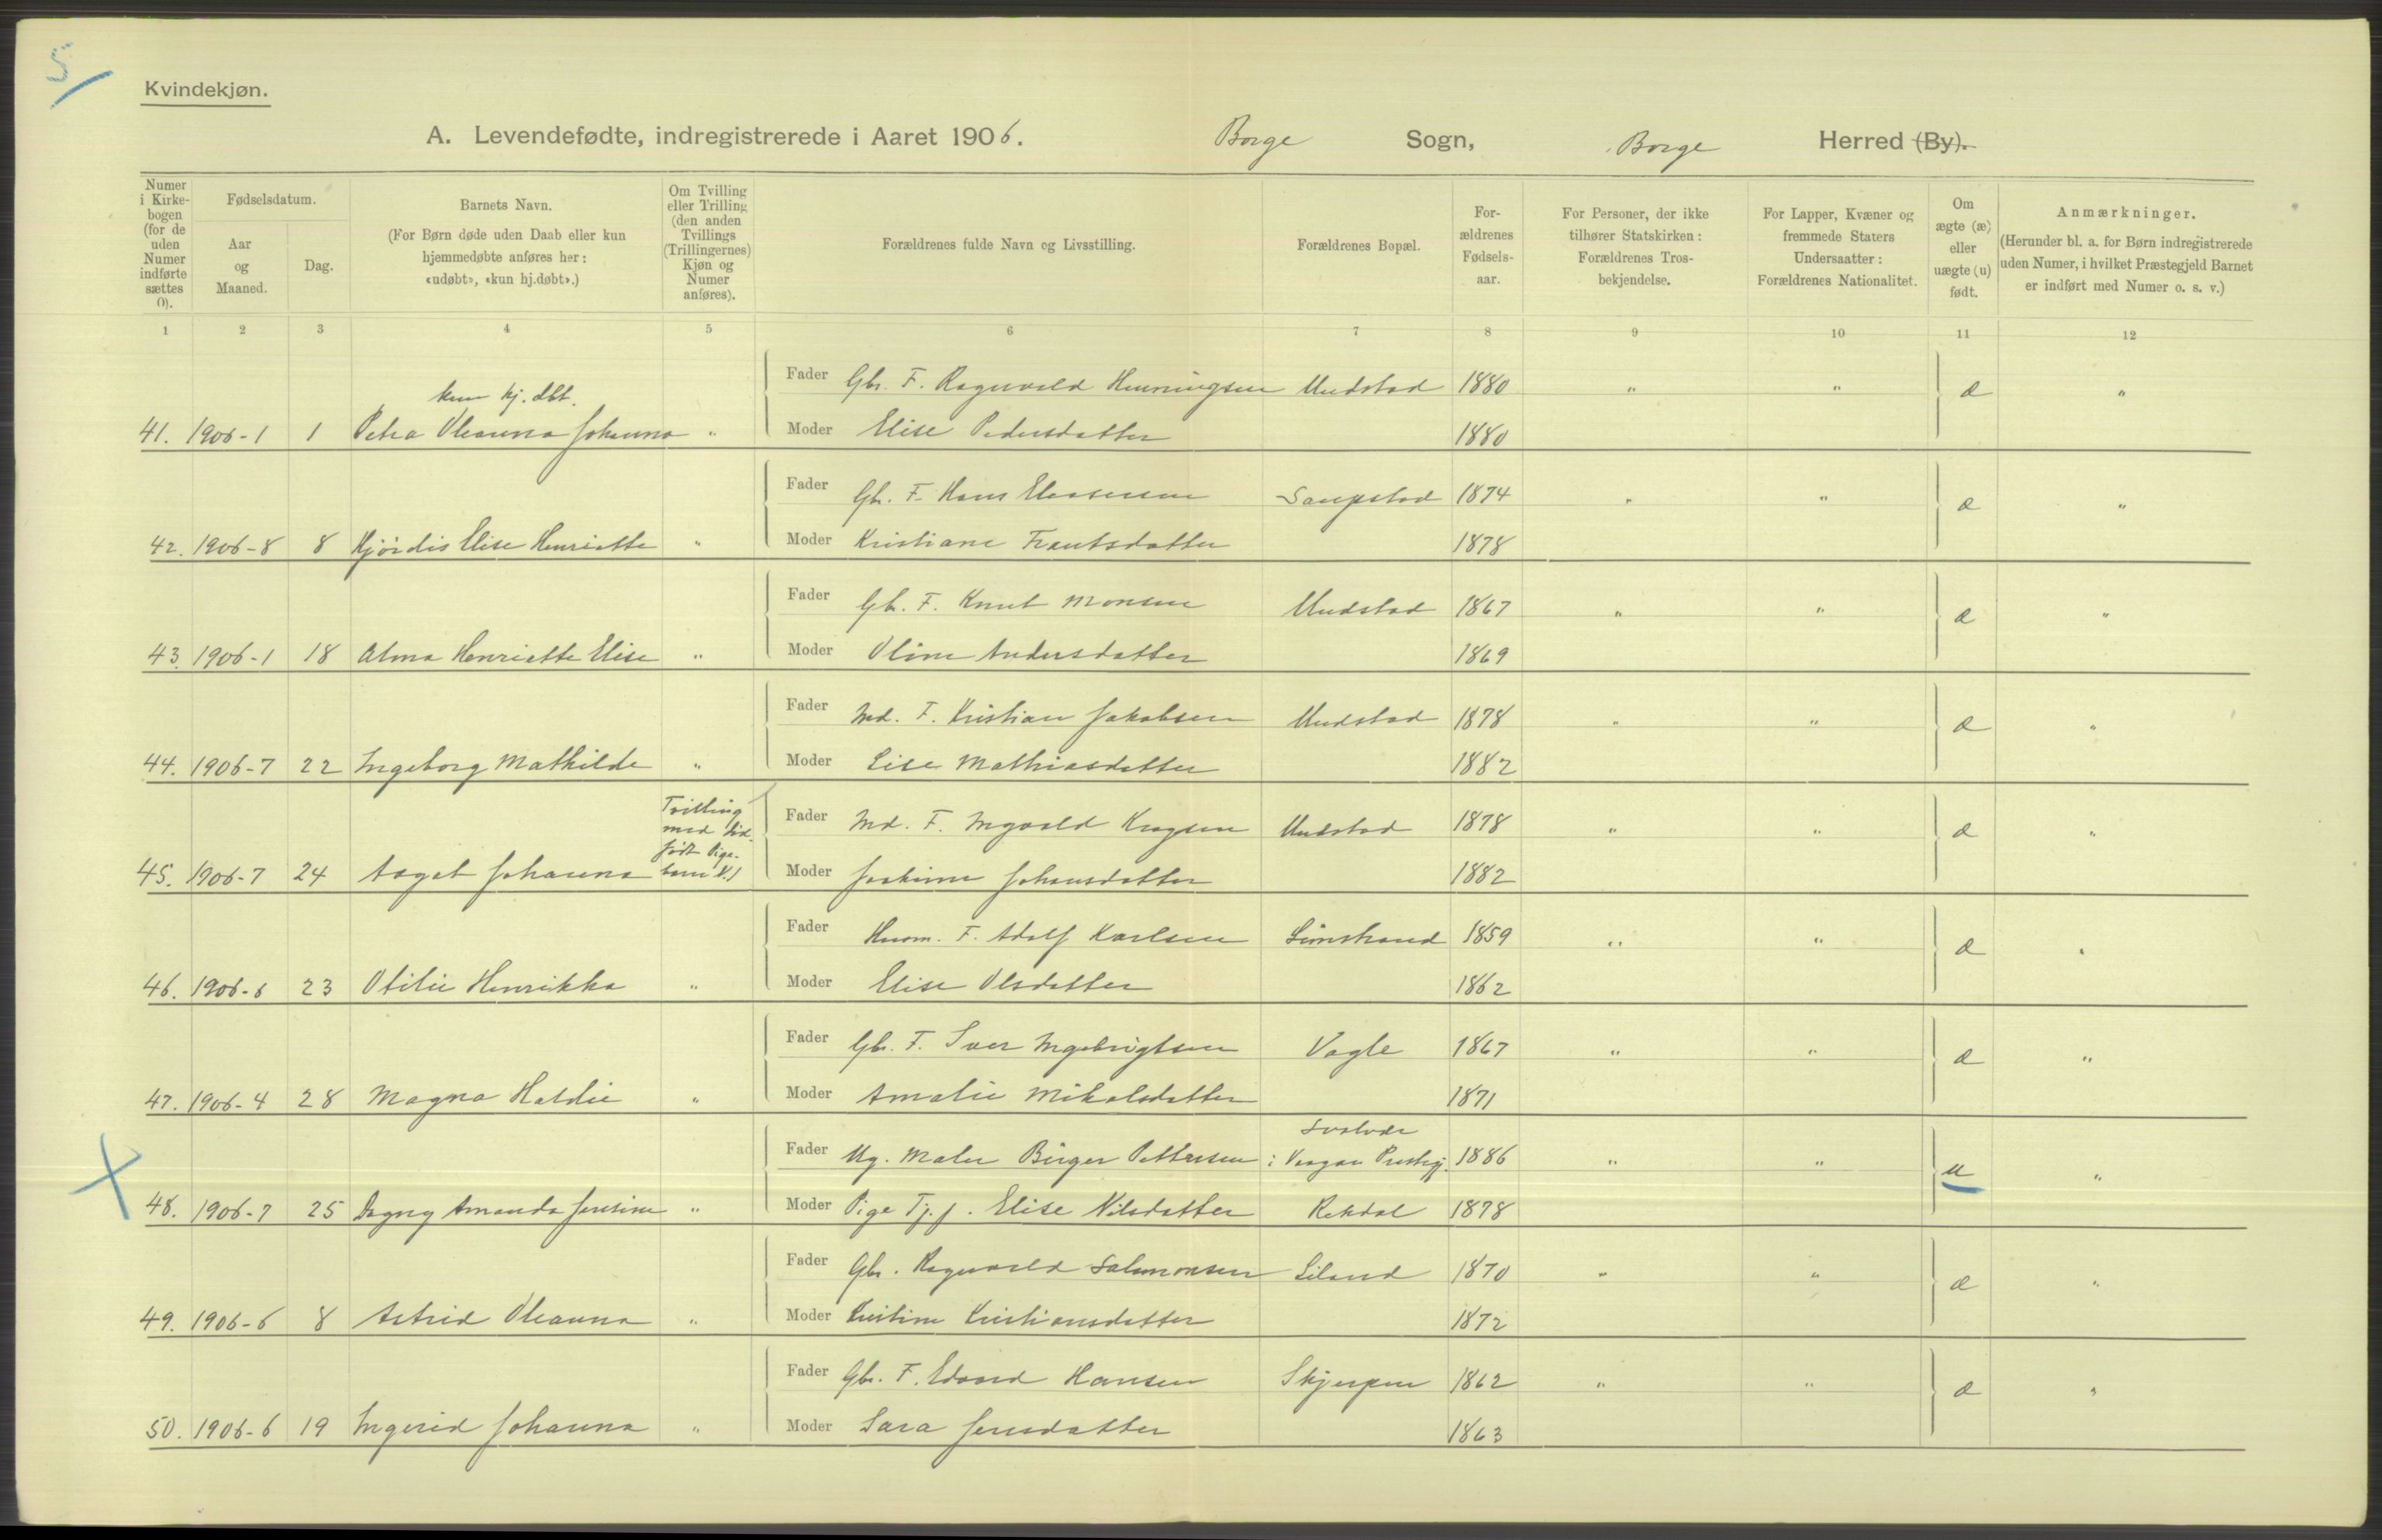 5
Kvindekjøn.
A. Levendefødte, indregistrerede i Aaret 1906. Borge Sogn, Borge Herred (By).
Numer i Kirke-bogen (for de uden Numer indførte sættes 0).
Fødselsdatum.
Aar og Maaned.
Dag.
Barnets Navn.
(For Børn døde uden Daab eller kun hjemmedøbte anføres her: «udøbt», «kun hj.døbt».)
Om Tvilling eller Trilling (den anden Tvillings (Trillingernes) Kjøn og Numer anføres).
Forældrenes fulde Navn og Livsstilling.
Forældrenes Bopæl.
For-ældrenes Fødsels-aar.
For Personer, der ikke tilhører Statskirken: Forældrenes Tros-bekjendelse.
For Lapper, Kvæner og fremmede Staters Undersaatter: Forældrenes Nationalitet.
Om ægte (æ) eller uægte (u) født.
Anmærkninger.
(Herunder bl. a. for Børn indregistrerede uden Numer, i hvilket Præstegjeld Barnet er indført med Numer o. s. v.)
1 2 3 4 5 6 7 8 9 10 11 12
kun hj. dbt.
Fader Gbr. F. Ragnvald Henningsen Undstad 1880 " " æ "
41. 1906-1 1 Petra Oleanna Johanna " Moder Elise Pedersdatter 1880
Fader Gb. F. Hans Saupstad 1874 " " æ "
42. 1906-8 8 Hjördis Elise Henriette " Moder Kristiane Frantsdatter 1878
Fader Gb. F. Knut Monsen Undstad 1867 " " æ "
43. 1906-1 18 Alma Henriette Elise " Moder Oline Andersdatter 1869
Fader Ind. F. Kristian Jakobsen Undstad 1878 " " æ "
44. 1906-7 22 Ingeborg Mathilde " Moder Lise Mathiasdatter 1882
Tvilling med død født Pige-barn
Fader Ind. F. Ingvald Krogsen Undstad 1878 " " æ "
45. 1906-7 24 Aagot Johanna Moder Joakime Johansdatter 1882
Fader Husm. F. Adolf Karlsen Limstrand 1859 " " æ "
46. 1906-6 23 Otilie Henrikka " Moder Elise Olsdatter 1862
Fader Gb. F. Iver Ingebrigtsen Vagle 1867 " " æ "
47. 1906-4 28 Magna Haldie " Moder Amalie Mikalsdatter 1871
Fader Ug. Maler Birger Pettersen i Vaagan Prestegj. 1886 " " u "
48. 1906-7 25 Dagny Amanda Jensine " Moder Pige Tj. p. Elise Nilsdatter Rekdal 1878
Fader Gbr. Ragnvald Salomonsen Liland 1870 " " æ "
49. 1906-6 8 Astrid Oleanna " Moder Kristine Kristiansdatter 1872
Fader Gbr. F. Edvard Hansen Skjerpen 1862 " " æ "
50. 1906-6 19 Ingerid Johanna " Moder Sara Jensdatter 1863